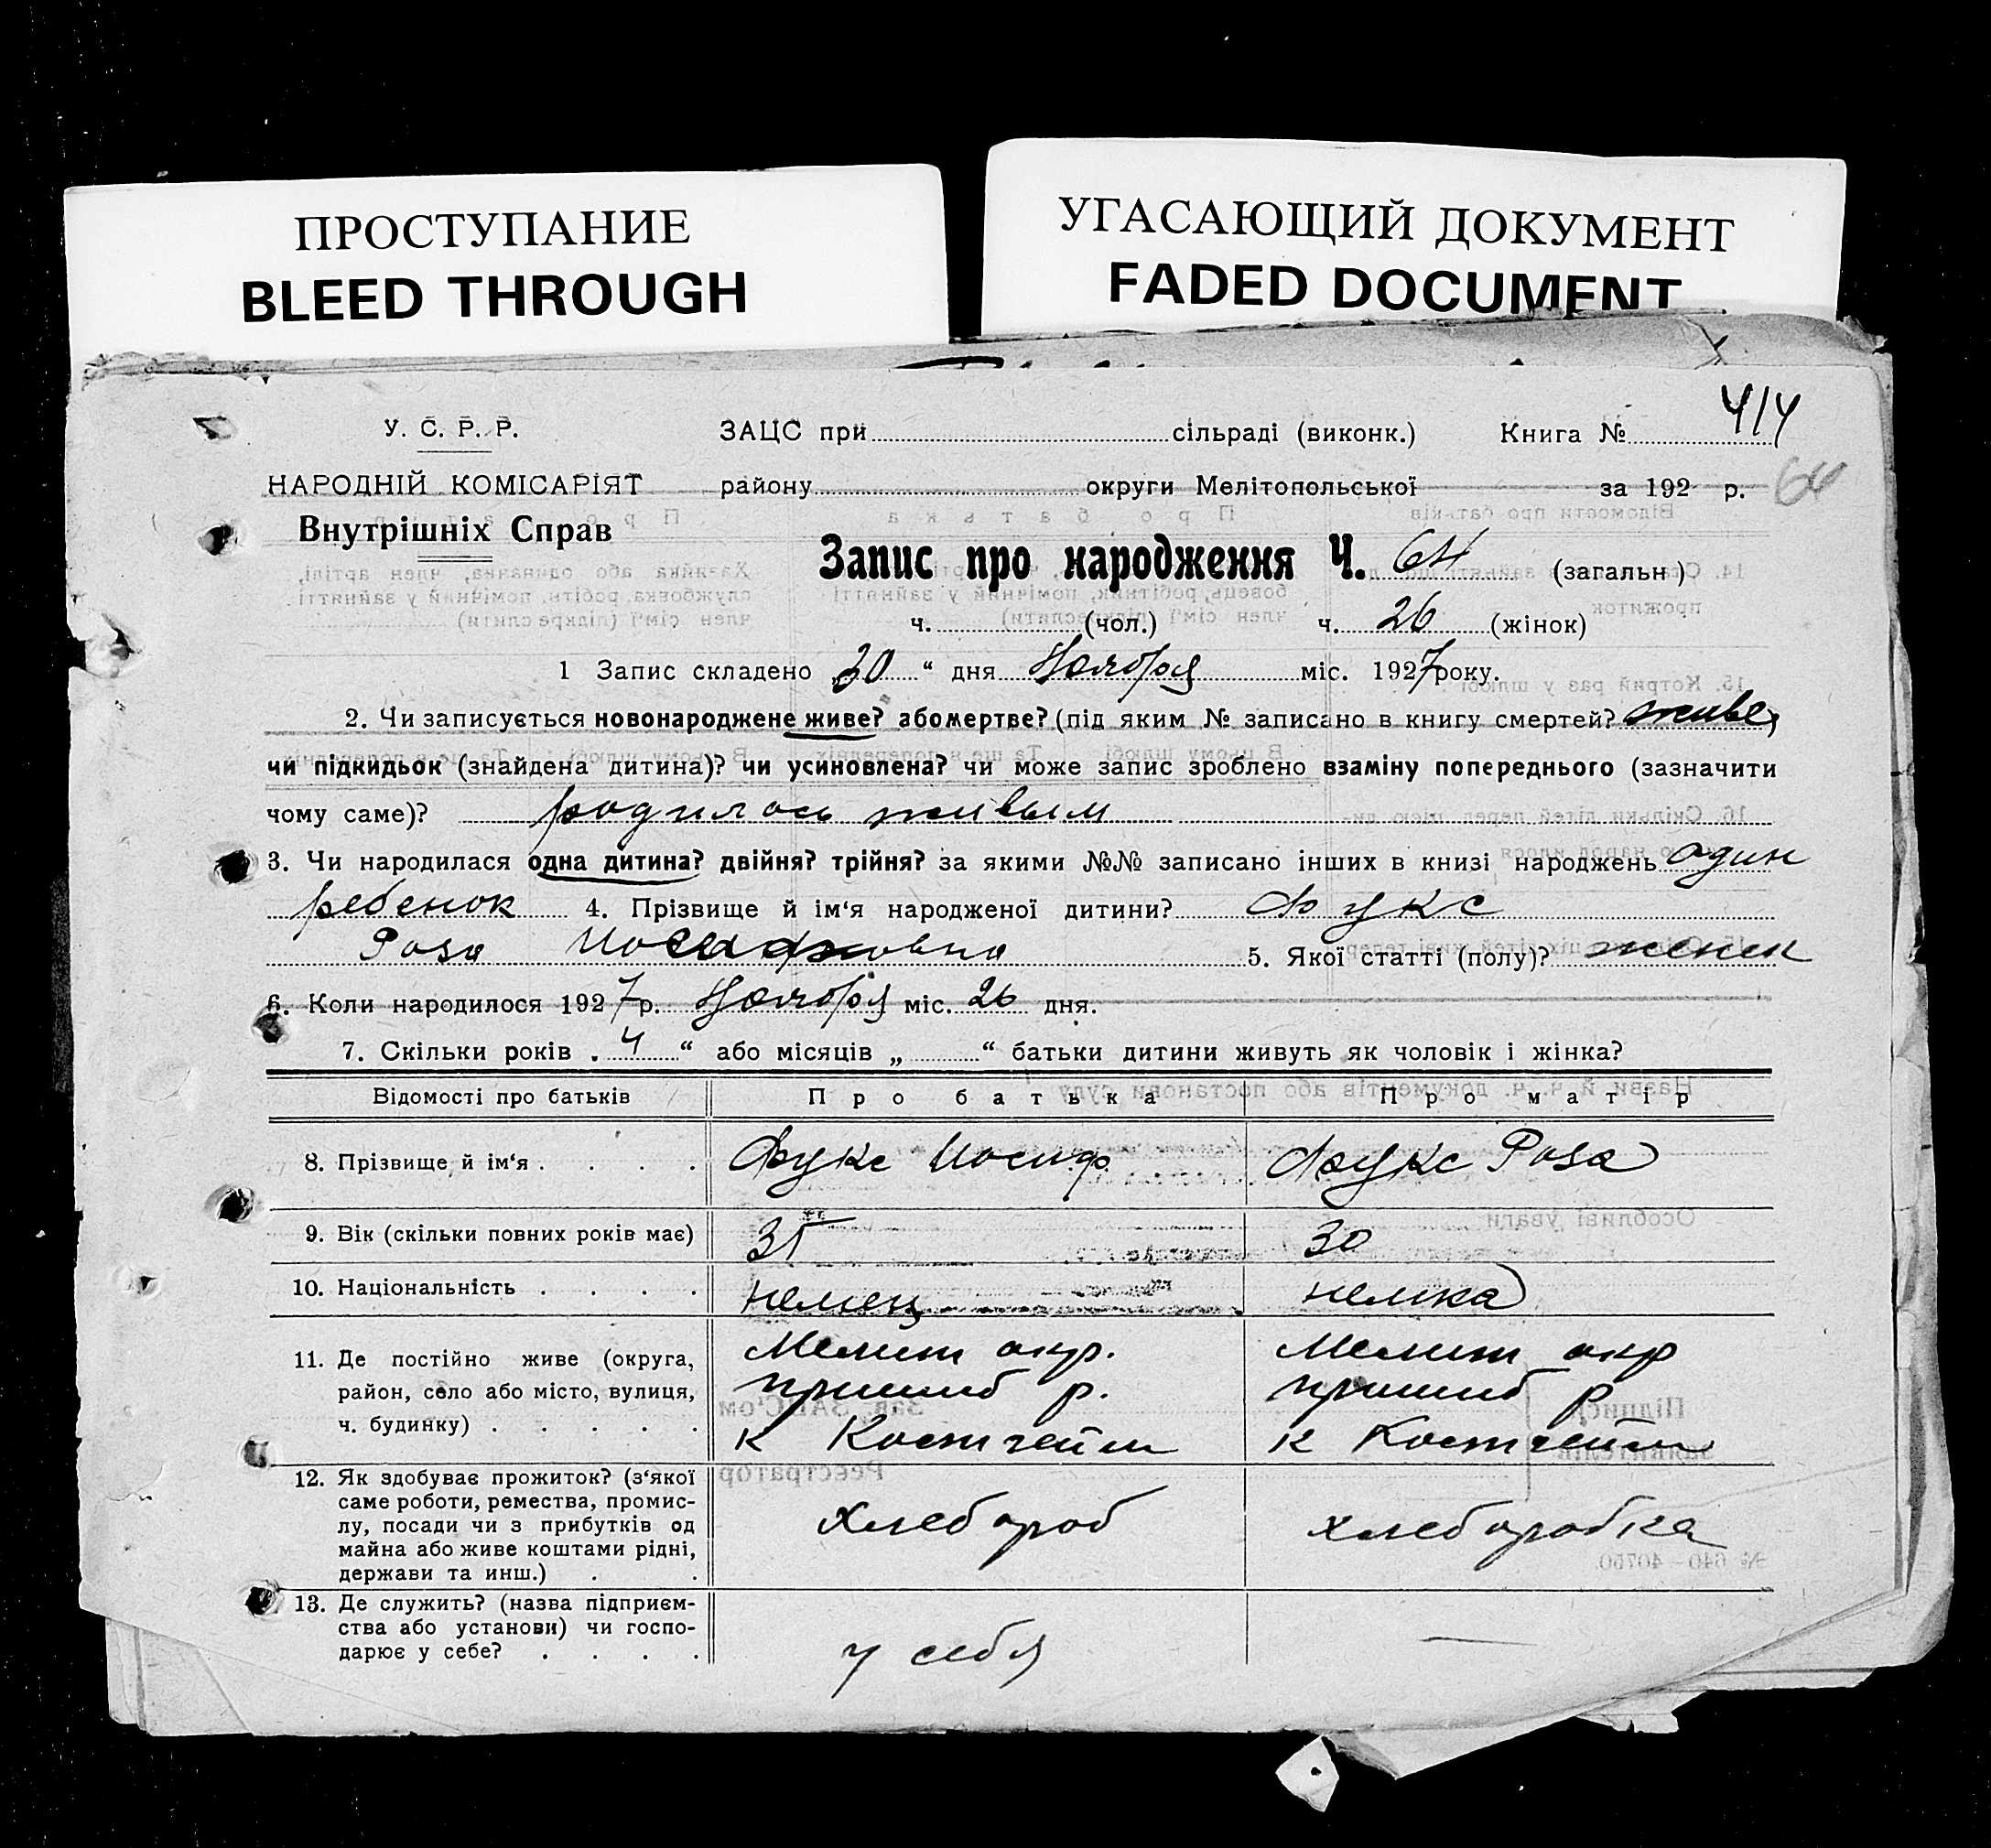 ПРОСТУПАНИЕ
BLEED THROUGH
УГАСАЮЩИЙ ДОКУМЕНТ
FADED DOCUMENT
У. С. Р. Р. ЗАЦС при сільраді (виконк.) Книга № 414
НАРОДНІЙ КОМІСАРІЯТ району округи Мелітопольської за 192 р. 64
Внутрішніх Справ
Запис про народження Ч. 64 (загальн )
ч. (чол.) ч. 26 (жінок)
1 Запис складено „30“ дня Ноября міс. 1927 року.
2. Чи записується новонароджене живе? або мертве? (під яким № записано в книгу смертей? живе,
чи підкидьок (знайдена дитина)? чи усиновлена? чи може запис зроблено взаміну попереднього (зазначити
чому саме)? родилось живым
3. Чи народилася одна дитина? двійня? трійня? за якими №№ записано інших в книзі народжень один
ребенок 4. Прізвище й ім‘я народженої дитини? Фукс
Роза Иосифовна 5. Якої статті (полу)? женск
6. Коли народилося 1927 р. Ноября міс. 26 дня.
7. Скільки років „4“ або місяців „ “ батьки дитини живуть як чоловік і жінка?
Відомості про батьків Про батька Про матір
8. Прізвище й ім‘я . . . . Фукс Иосиф Фукс Роза
9. Вік (скільки повних років має) 35 30
10. Національність . . . . немец немка
11. Де постійно живе (округа, Мелит окр. Мелит окр
район, село або місто, вулиця, пришиб р. пришиб р
ч. будинку) . . . . . к Костгейм к Костгейм
12. Як здобуває прожиток? (з‘якої
саме роботи, ремества, промис-
лу, посади чи з прибутків од хлебороб хлеборобка
майна або живе коштами рідні,
держави та инш.) . .
13. Де служить? (назва підприєм-
ства або установи) чи госпо-
дарює у себе? . . . . у себя —